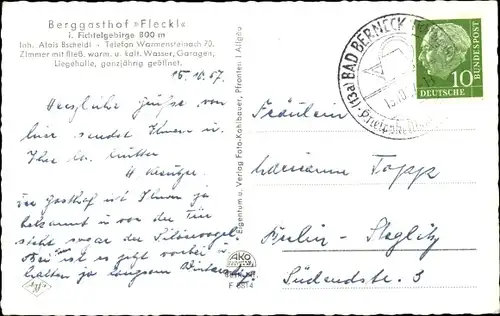 Berggasthof »Fleckl«
i. Fichtelgebirge 800 m
Inh. Alois Bscheidl - Telefon Warmensteinach 70.
Zimmer mit fließ. warm. u. kalt. Wasser, Garagen,
Liegehalle, ganzjährig geöffnet.
15.10.57.
Herzliche Grüße von
hier sendet Ihnen u.
Ihrer lb. Mutter
H
der Gasthof ist Ihnen ja
bekannt u vor der Tür
steht sogar der Silbervogel
es jetzt vorbei u
halten ja langsam
Eigentum u. Verlag Foto-Kohlbauer, Pfronten i. Allgäu
AKO
F 6814
Agfa
(13a) BAD BERNECK
15.10.
10
DEUTSCHE
BUNDESPOST
Fräulein
Marianne Topp
Berlin - Steglitz
Südendstr. 3